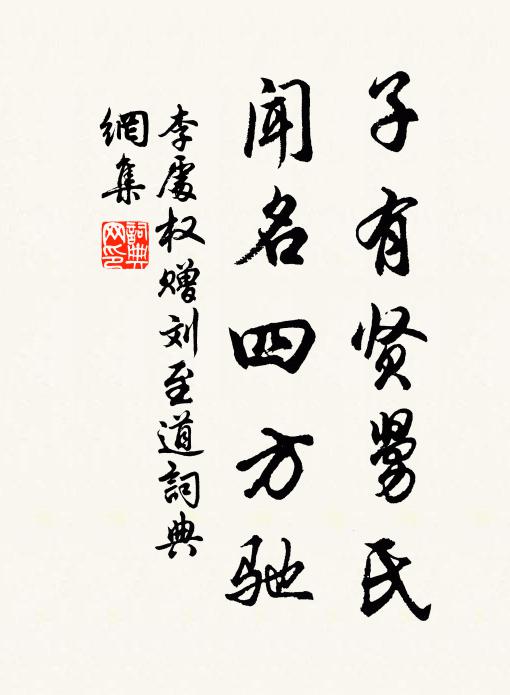 子有贤舅氏
闻名四方驰
李處权赠刘至道詞典
網集
詞典网印